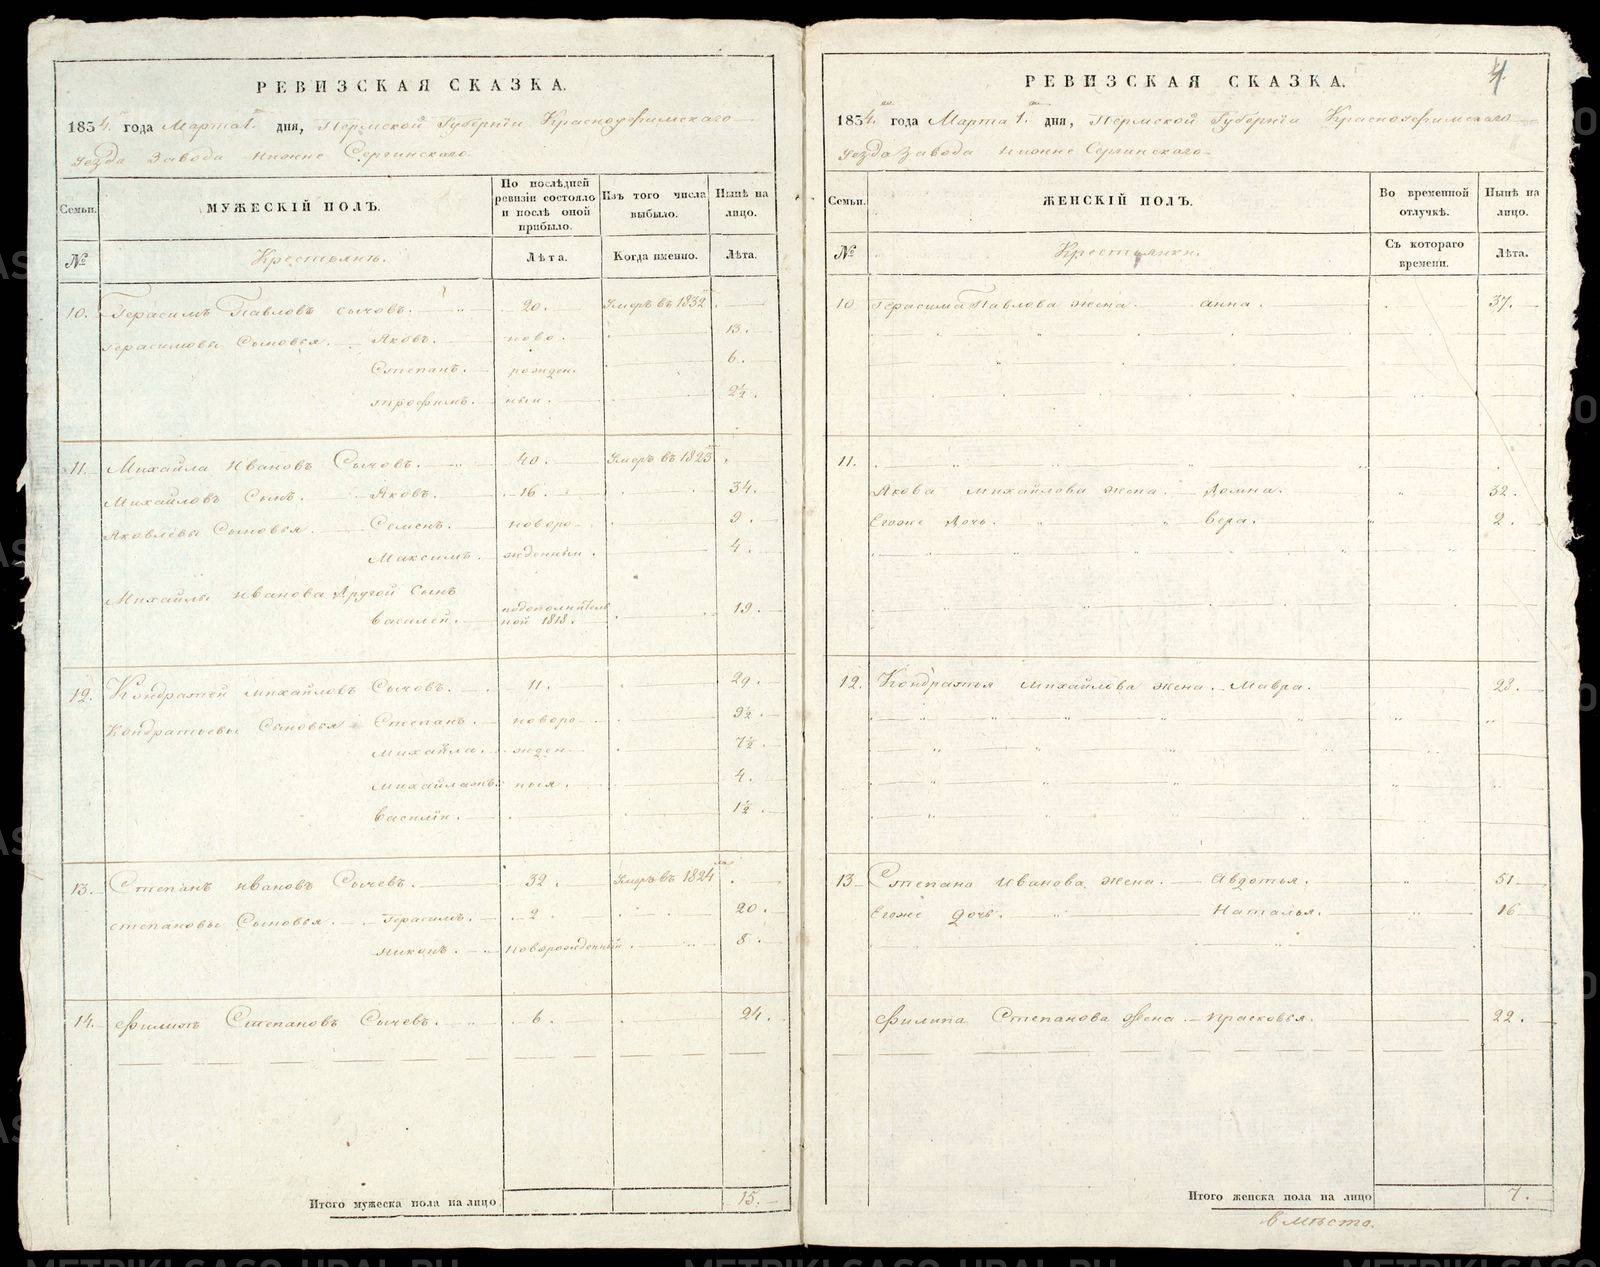 РЕВИЗСКАЯ СКАЗКА.
1834. года Марта 1. дня, Пермской Губерніи Красноуфимскаго
уезда Завода Нижне Сергинскаго
Семьи. МУЖЕСКІЙ ПОЛЪ. По послѣдней ревизіи состояло и послѣ оной прибыло. Изъ того числа выбыло. Нынѣ на лицо.
№ Крестьянъ. Лѣта. Когда именно. Лѣта.
10. Герасимъ Павловъ Сычовъ. 20. Умеръ въ 1832
Герасимовы Сыновья. Яковъ. ново. 13.
Степанъ. рожден. 6.
трофимъ. ныи. 2½.
11. Михайла Ивановъ Сычовъ. 40. Умеръ въ 1825
Михайловъ Сынъ. Яковъ. 16. 34.
Яковлевы Сыновья. Семенъ. новоро 9.
Максимъ. жденныи. 4.
Михайлы Иванова Другой Сынъ
Василей. подополнитель ной 1818. 19.
12. Кондратей Михайловъ Сычовъ. 11. 29.
Кондратьевы Сыновья Степанъ. новоро 9½.
Михайла. жден 7½.
Михайлажъ. ныя. 4.
Василіи. 1½.
13. Степанъ Ивановъ Сычевъ. 32. Умеръ въ 1824
степановы Сыновья. Герасимъ. 2. 20.
Никонъ. Новорожденный 8.
14. Филипъ Степановъ Сычевъ. 6. 24.
Итого мужеска пола на лицо 15.
4
РЕВИЗСКАЯ СКАЗКА.
1834. года Марта 1. дня, Пермской Губерніи Красноуфимскаго
уезда Завода Нижне Сергинскаго
Семьи. ЖЕНСКІЙ ПОЛЪ. Во временной отлучкѣ. Нынѣ на лицо.
№ Крестьянки. Съ котораго времени. Лѣта.
10 Герасима Павлова жена. анна. 37.
11.
Якова Михайлова жена. Домна. 32.
Егоже Дочь. Вера. 2.
12. Кондратья Михайлова жена. Мавра. 28.
13 Степана Иванова жена. Авдотья. 51
Егоже дочь. Наталья. 16
Филипа Степанова Жена. Прасковья. 22.
Итого женска пола на лицо 7.
вместо.